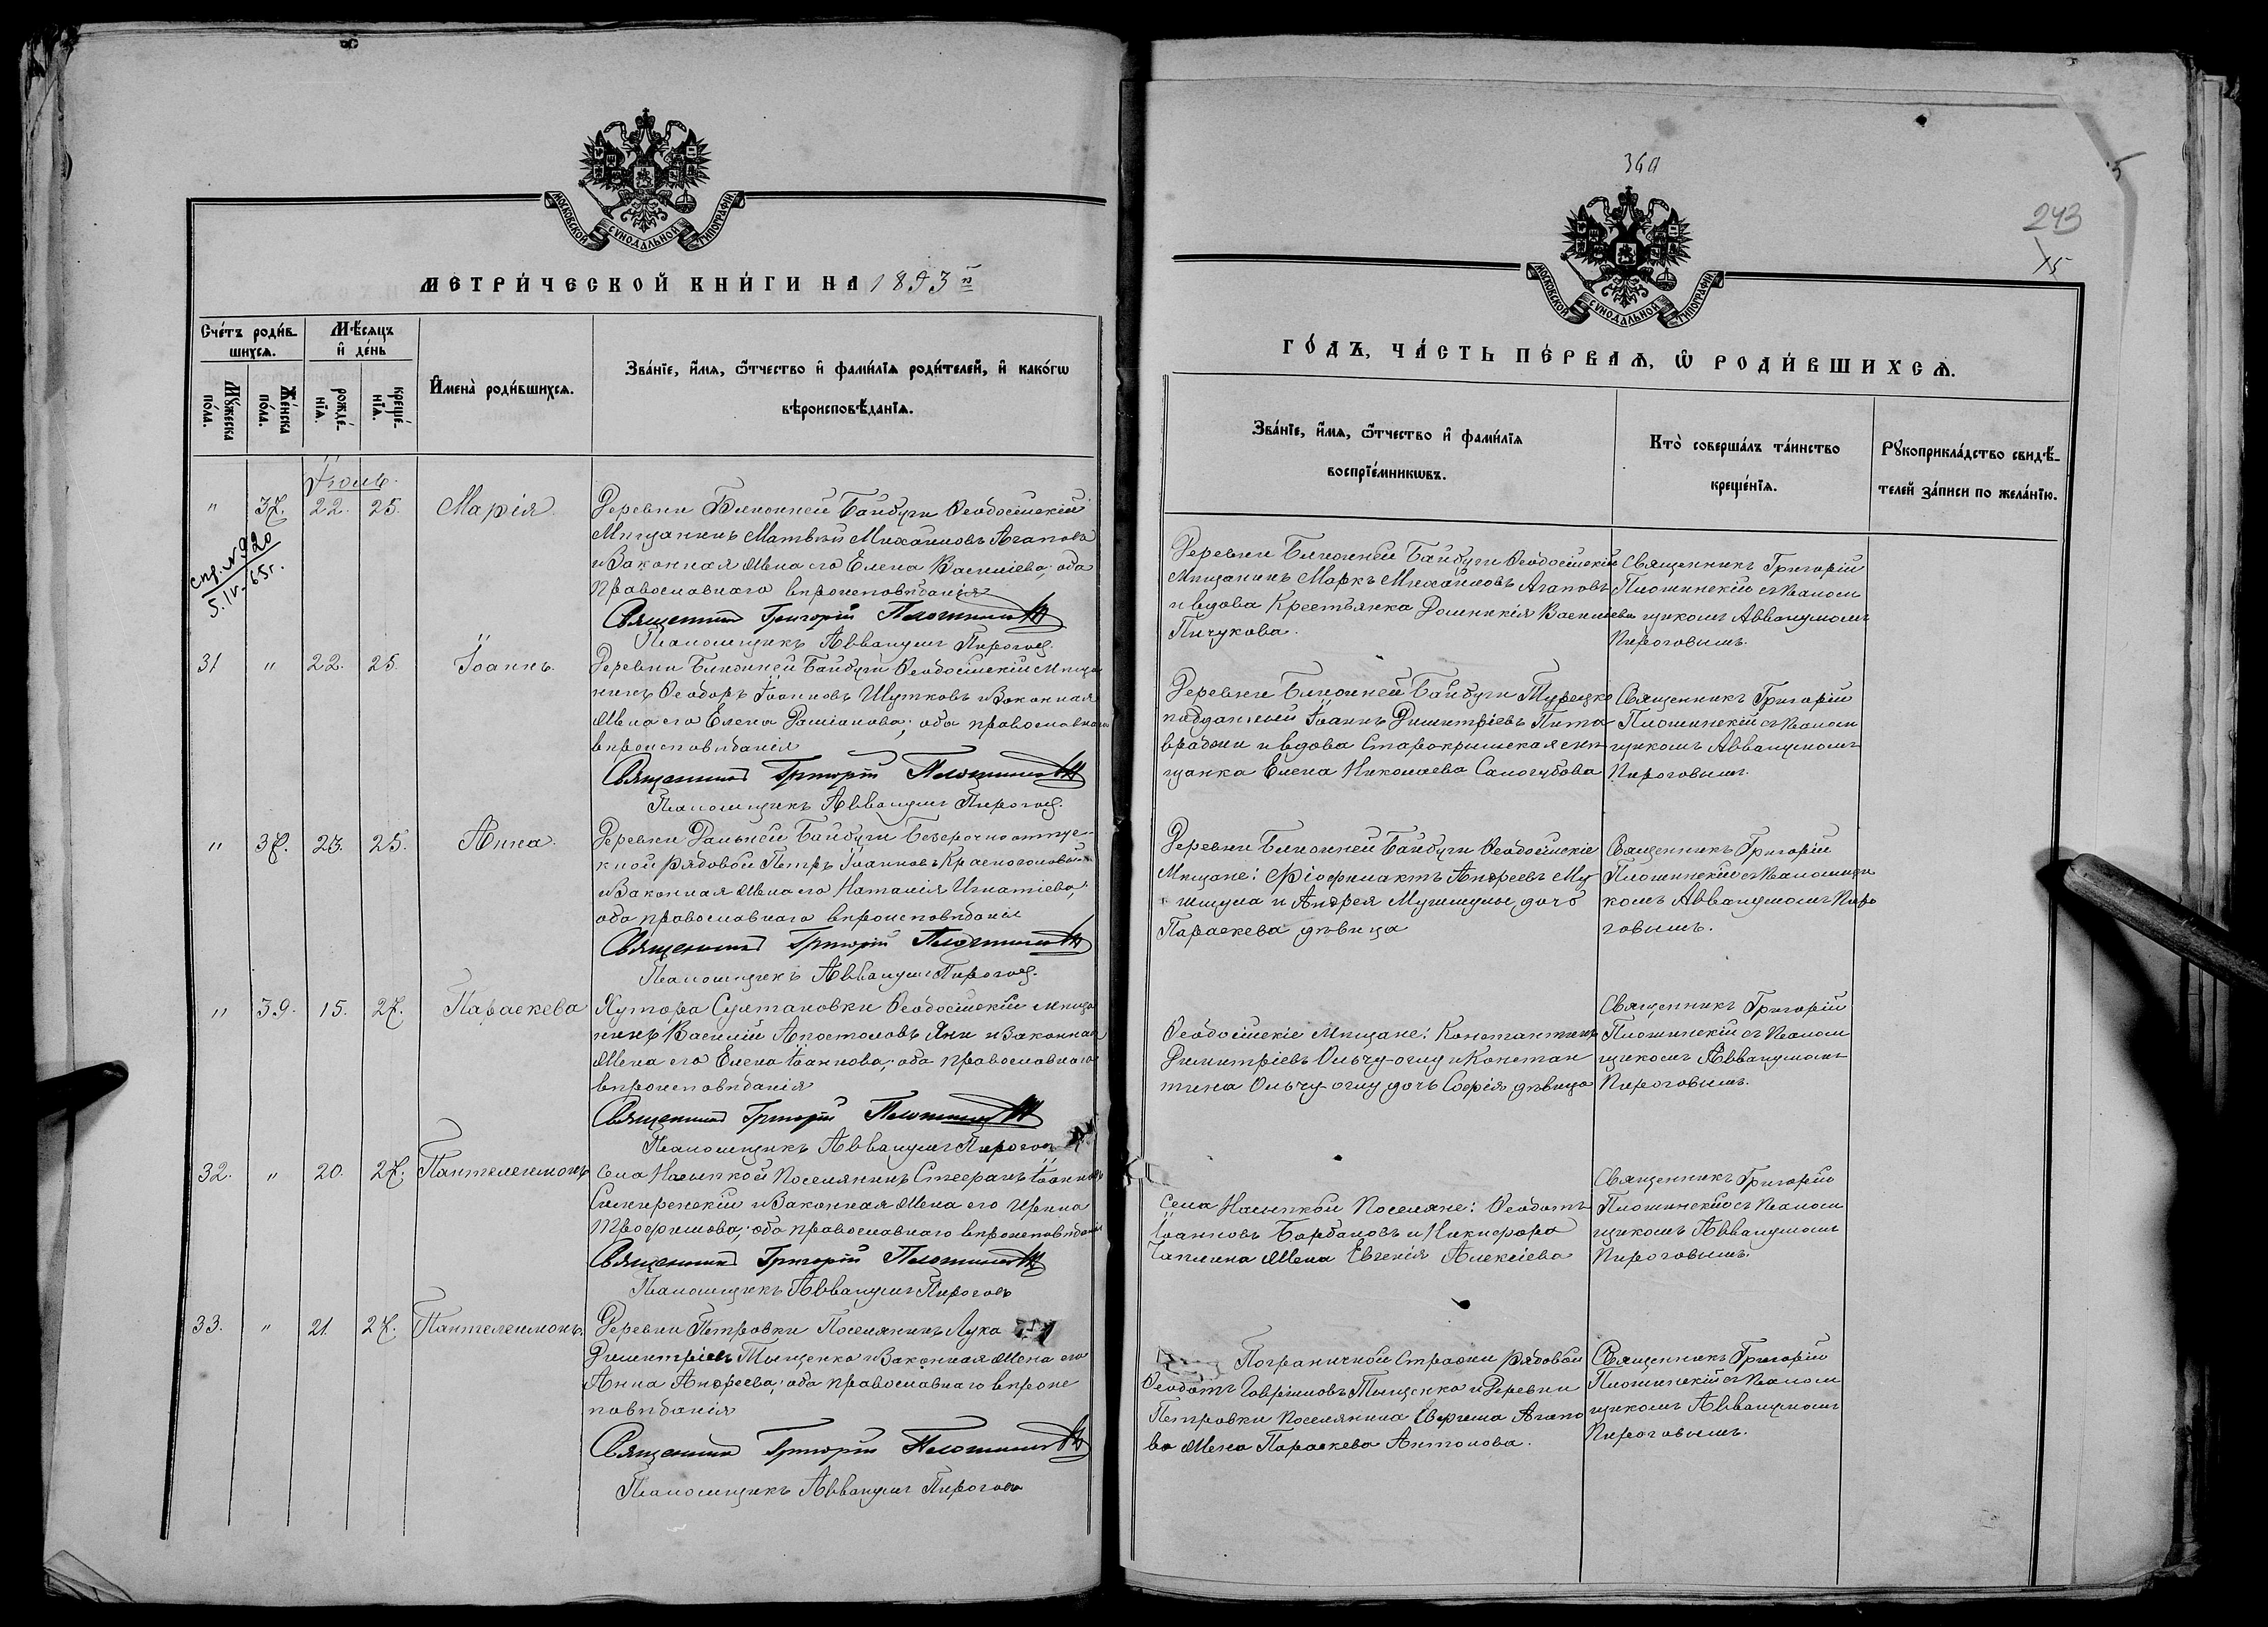 МОСКОВСКОЙ СѴНОДАЛЬНОЙ ТИПОГРАФІИ.
МЕТРИ́ЧЕСКОЙ КНИ́ГИ НА 1893й
Сче́тъ роди́в-
шихсѧ.
Мѣ́сѧцъ
и҆ де́нь
Мꙋ́жеска по́ла.
Же́нска по́ла.
рожде́-нїѧ.
креще́-нїѧ.
И҆мена̀ роди́вшихсѧ.
Зва́нїе, и҆́мѧ, ѻ҆́тчество и҆ фами́лїѧ роди́телей, и҆ како́гѡ
вѣроисповѣ́данїѧ.
Іюль.
" 37. 22. 25. Марія.
Деревни Ближней Байбуги Ѳеодосійскій
Мѣщанинъ Матвѣй Михаиловъ Агаповъ
и Законная Жена его Елена Василіева; оба
Православнаго вѣроисповѣданія
Священникъ Григорій
Псаломщикъ Аввакумъ Пироговъ.
спр. № 920
5.IV-65г.
31 " 22. 25. Іоаннъ.
Деревни Ближней Байбуги Ѳеодосійскій Мѣща
нинъ Ѳеодоръ Іоанновъ Шутковъ и Законная
Жена его Елена Даміанова; оба православнаго
вѣроисповѣданія
Священникъ Григорій
Псаломщикъ Аввакумъ Пироговъ.
" 38. 23. 25. Анна.
Деревни Дальней Байбуги Безсрочно отпус-
кной рядовой Петръ Іоанновъ
и Законная Жена его Наталія Игнатіева,
оба православнаго вѣроисповѣданія
Священникъ Григорій
Псаломщикъ Аввакумъ Пироговъ.
" 39. 15. 27. Параскева
Хутора Султановки Ѳеодосійскій мѣща
нинъ Василій Апостоловъ Яни и Законная
Жена его Елена Іоаннова; оба православнаго
вѣроисповѣданія
Священникъ Григорій
Псаломщикъ Аввакумъ Пироговъ
32. " 20. 27. Пантелеимонъ
Села Насыпкой Поселянинъ Стефанъ Іоанновъ
и Законная Жена его Ирина
Трофимова; оба православнаго вѣроисповѣданія
Священникъ Григорій
Псаломщикъ Аввакумъ Пироговъ
33. " 21. 27. Пантелеимонъ.
Деревни Петровки Поселянинъ Лука
Димитріевъ Тыщенко и Законная Жена его
Анна Андреева; оба православнаго вѣроис
повѣданія
Священникъ Григорій
Псаломщикъ Аввакумъ Пироговъ
360
243
15
5
МОСКОВСКОЙ СѴНОДАЛЬНОЙ ТИПОГРАФІИ.
ГО́ДЪ, ЧА́СТЬ ПЕ́РВАѦ, Ѡ҆ РОДИ́ВШИХСѦ.
Зва́нїе, и҆́мѧ, ѻ҆́тчество и҆ фами́лїѧ
воспрїе́мникѡвъ.
Кто̀ соверша́лъ та́инство
креще́нїѧ.
Рꙋкоприкла́дство свидѣ́-
телей за́писи по жела́нїю.
Деревни Ближней Байбуги Ѳеодосійскій
Мѣщанинъ Маркъ Михайловъ Агаповъ
и вдова Крестьянка Домникія Василіева
Пичукова.
Священникъ Григорій
съ Псалом
щикомъ Аввакумомъ
Пироговымъ.
Деревни Ближней Байбуги Турецко
подданный Іоаннъ Димитріевъ Пита
враджи и вдова Старокрымская мѣ
щанка Елена Николаева Самогубова
Священникъ Григорій
съ Псалом
щикомъ Аввакумомъ
Пироговымъ.
Деревни Ближней Байбуги Ѳеодосійскіе
Мѣщане: Ѳіофилактъ Андреевъ Муш
мула и Андрея Мушмулы дочь
Параскева дѣвица
Священникъ Григорій
съ Псаломщи
комъ Аввакумомъ Пиро
говымъ.
Ѳеодосійскіе Мѣщане: Константинъ
Димитріевъ Ольчу-оглу и Констан
тина Ольчу-оглу дочь Софія дѣвица
Священникъ Григорій
съ Псалом
щикомъ Аввакумомъ
Пироговымъ.
Села Насыпкой Поселяне: Ѳеодотъ
Іоанновъ Барбановъ и Никифора
Чаплина Жена Евгенія Алексіева
Священникъ Григорій
съ Псалом
щикомъ Аввакумомъ
Пироговымъ.
Пограничной Стражи рядовой
Ѳеодотъ Гавриловъ Тыщенко и Деревни
Петровки Поселянина Ефрема Агапо
ва Жена Параскева Антонова.
Священникъ Григорій
съ Псалом
щикомъ Аввакумомъ
Пироговымъ.